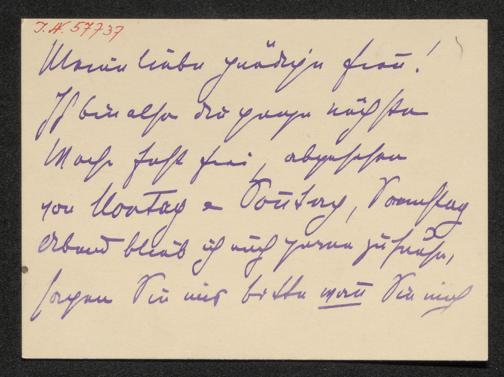 I. N. 57737
Meine liebe gnädige Frau!
Ich bin also die ganze nächste
Woche fast frei, abgesehen
von Montag u Sonntag, Samstag
Abend bleib ich auch gerne zuhause,
sagen Sie mir bitte wann Sie mich